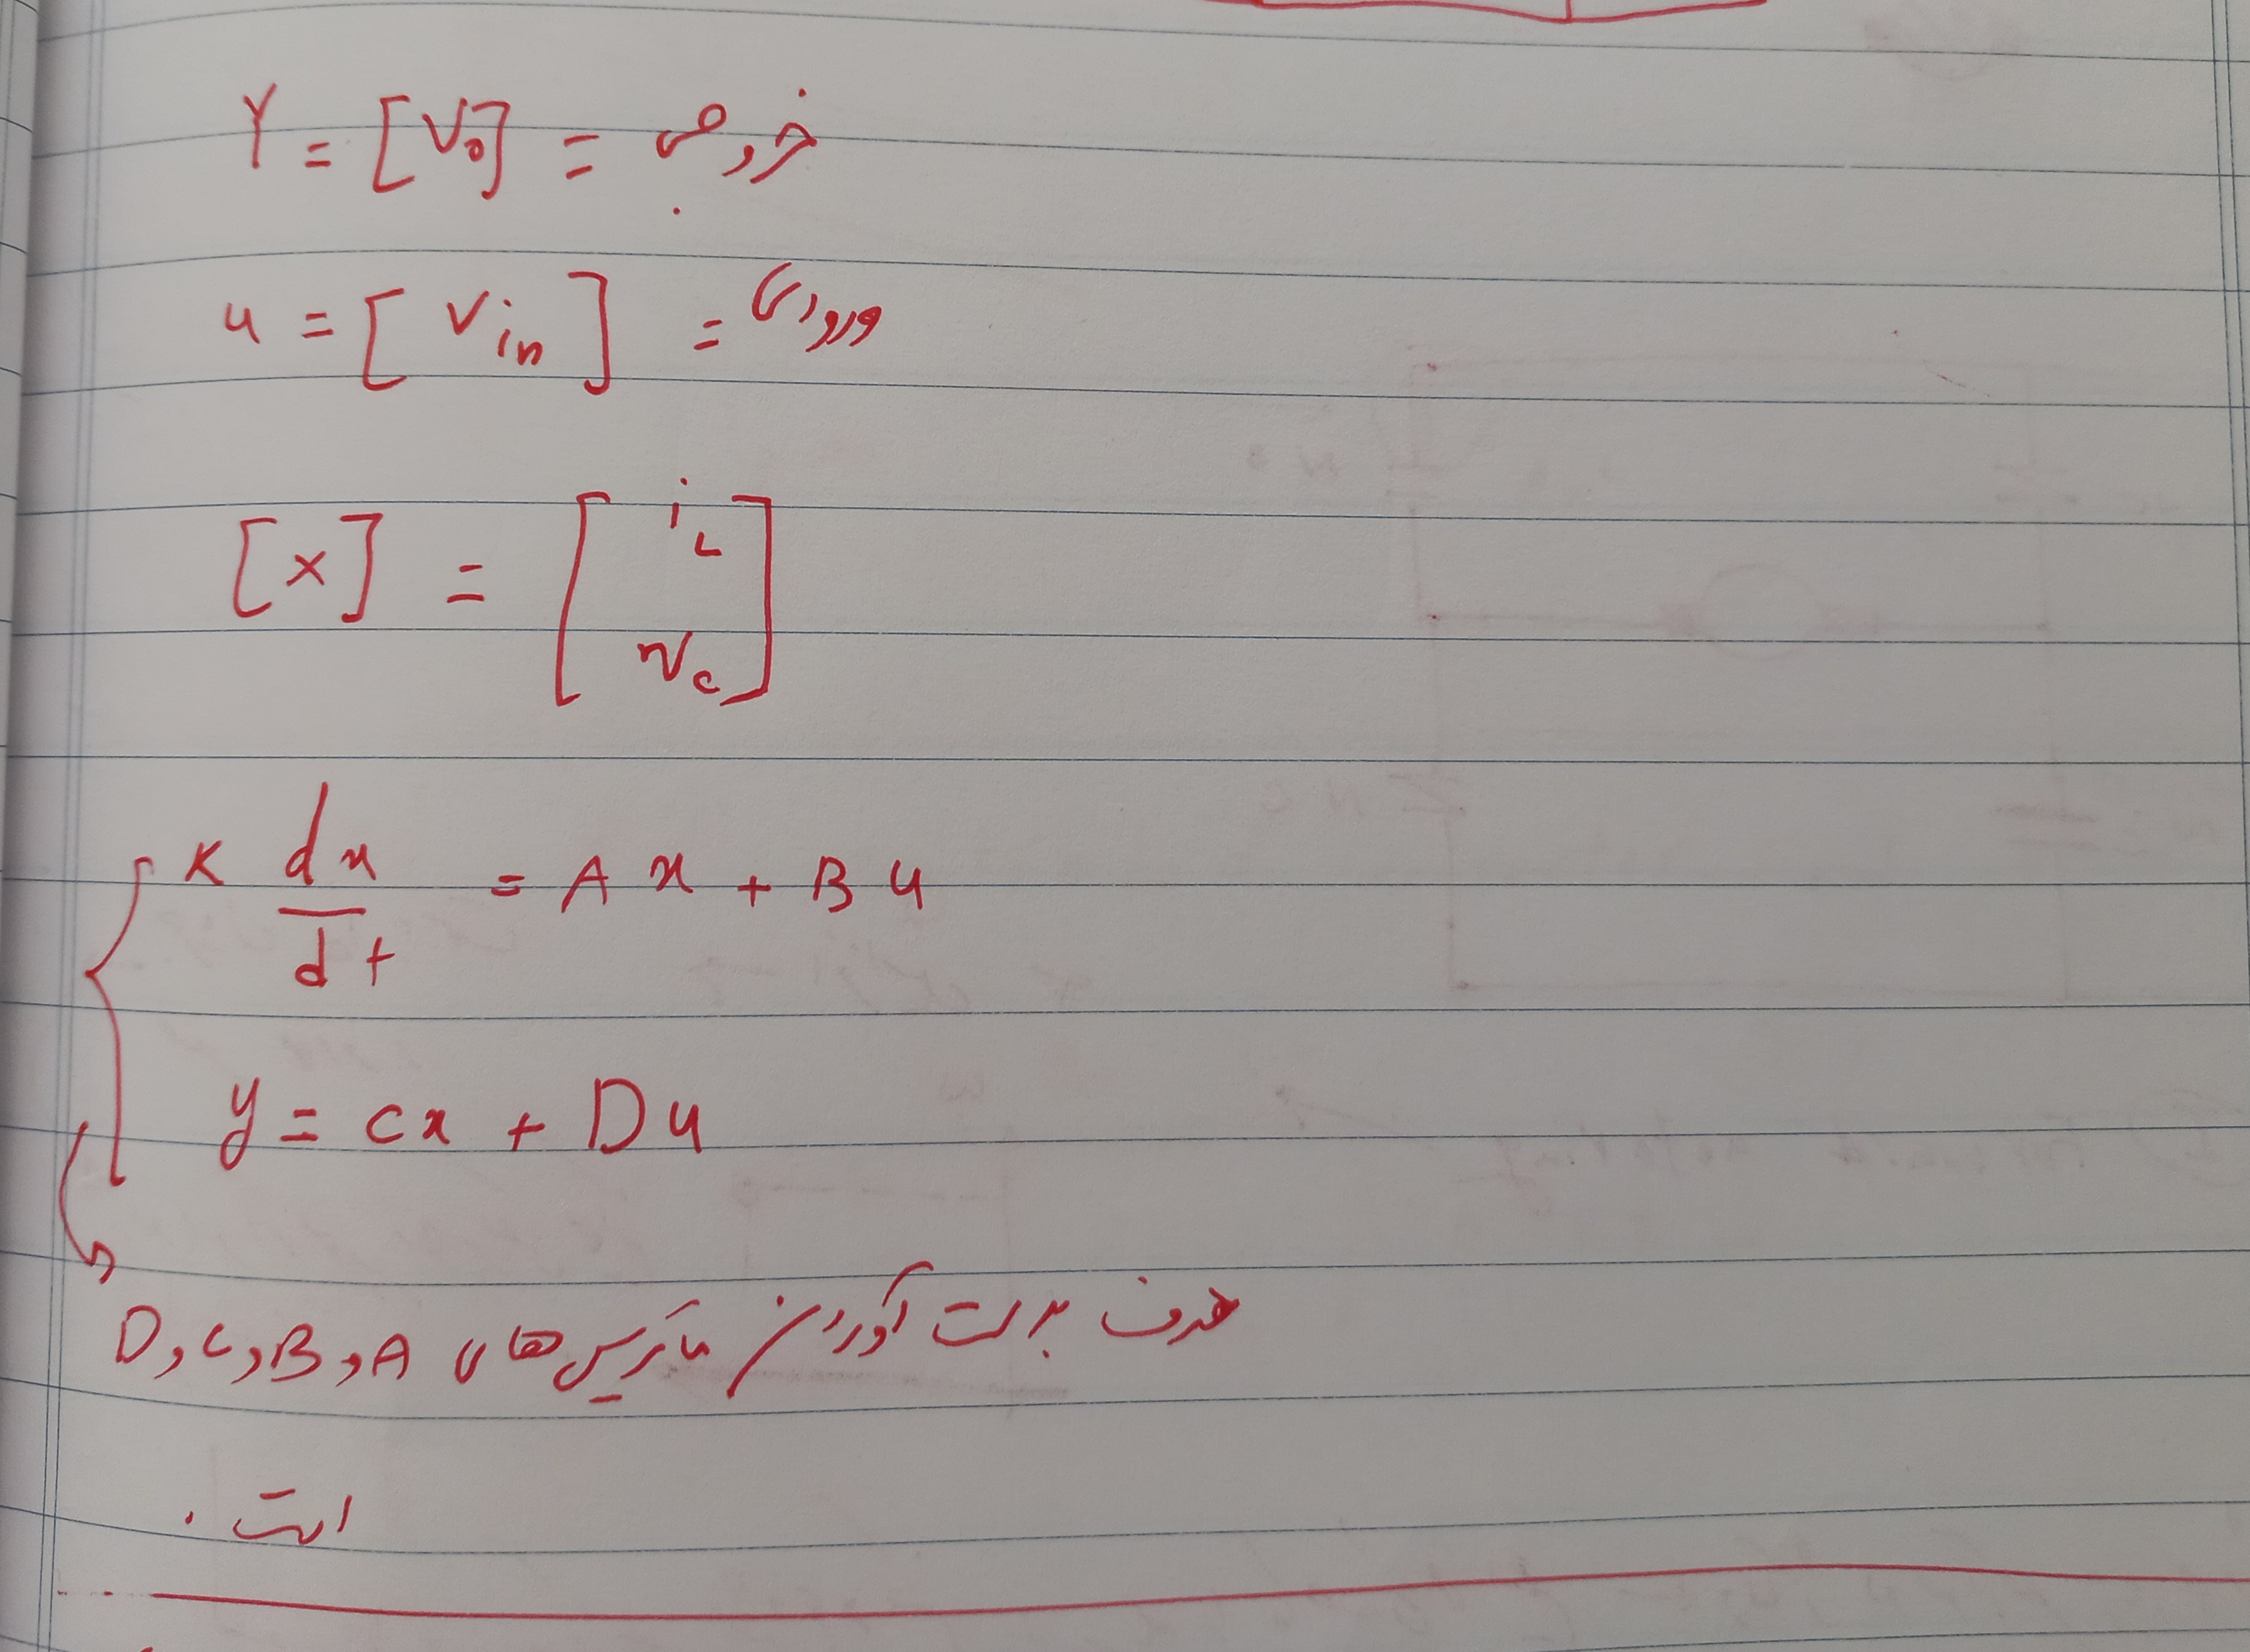 Y = [V₀] = خروجی
u = [Vin] = ورودی
[x] = [iL
vc]
K dx/dt = A x + B u
y = Cx + Du
هدف بدست آوردن ماتریس‌های A و B و C و D
است .